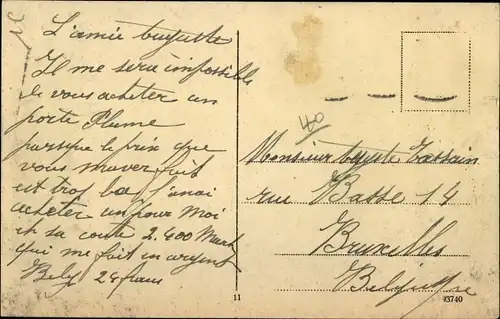 L'amie Auguste
Il me sera impossible
de vous acheter un
porte Plume
parsque le prix que
vous m'aver fait
est trop ba j'anai
acheter un pour moi
et sa coute 2.400 Mark
qui me fait en argent
Belg 24 frans
40
Monsieur Auguste
rue Basse 14
Bruxelles
Belgique
11
93740